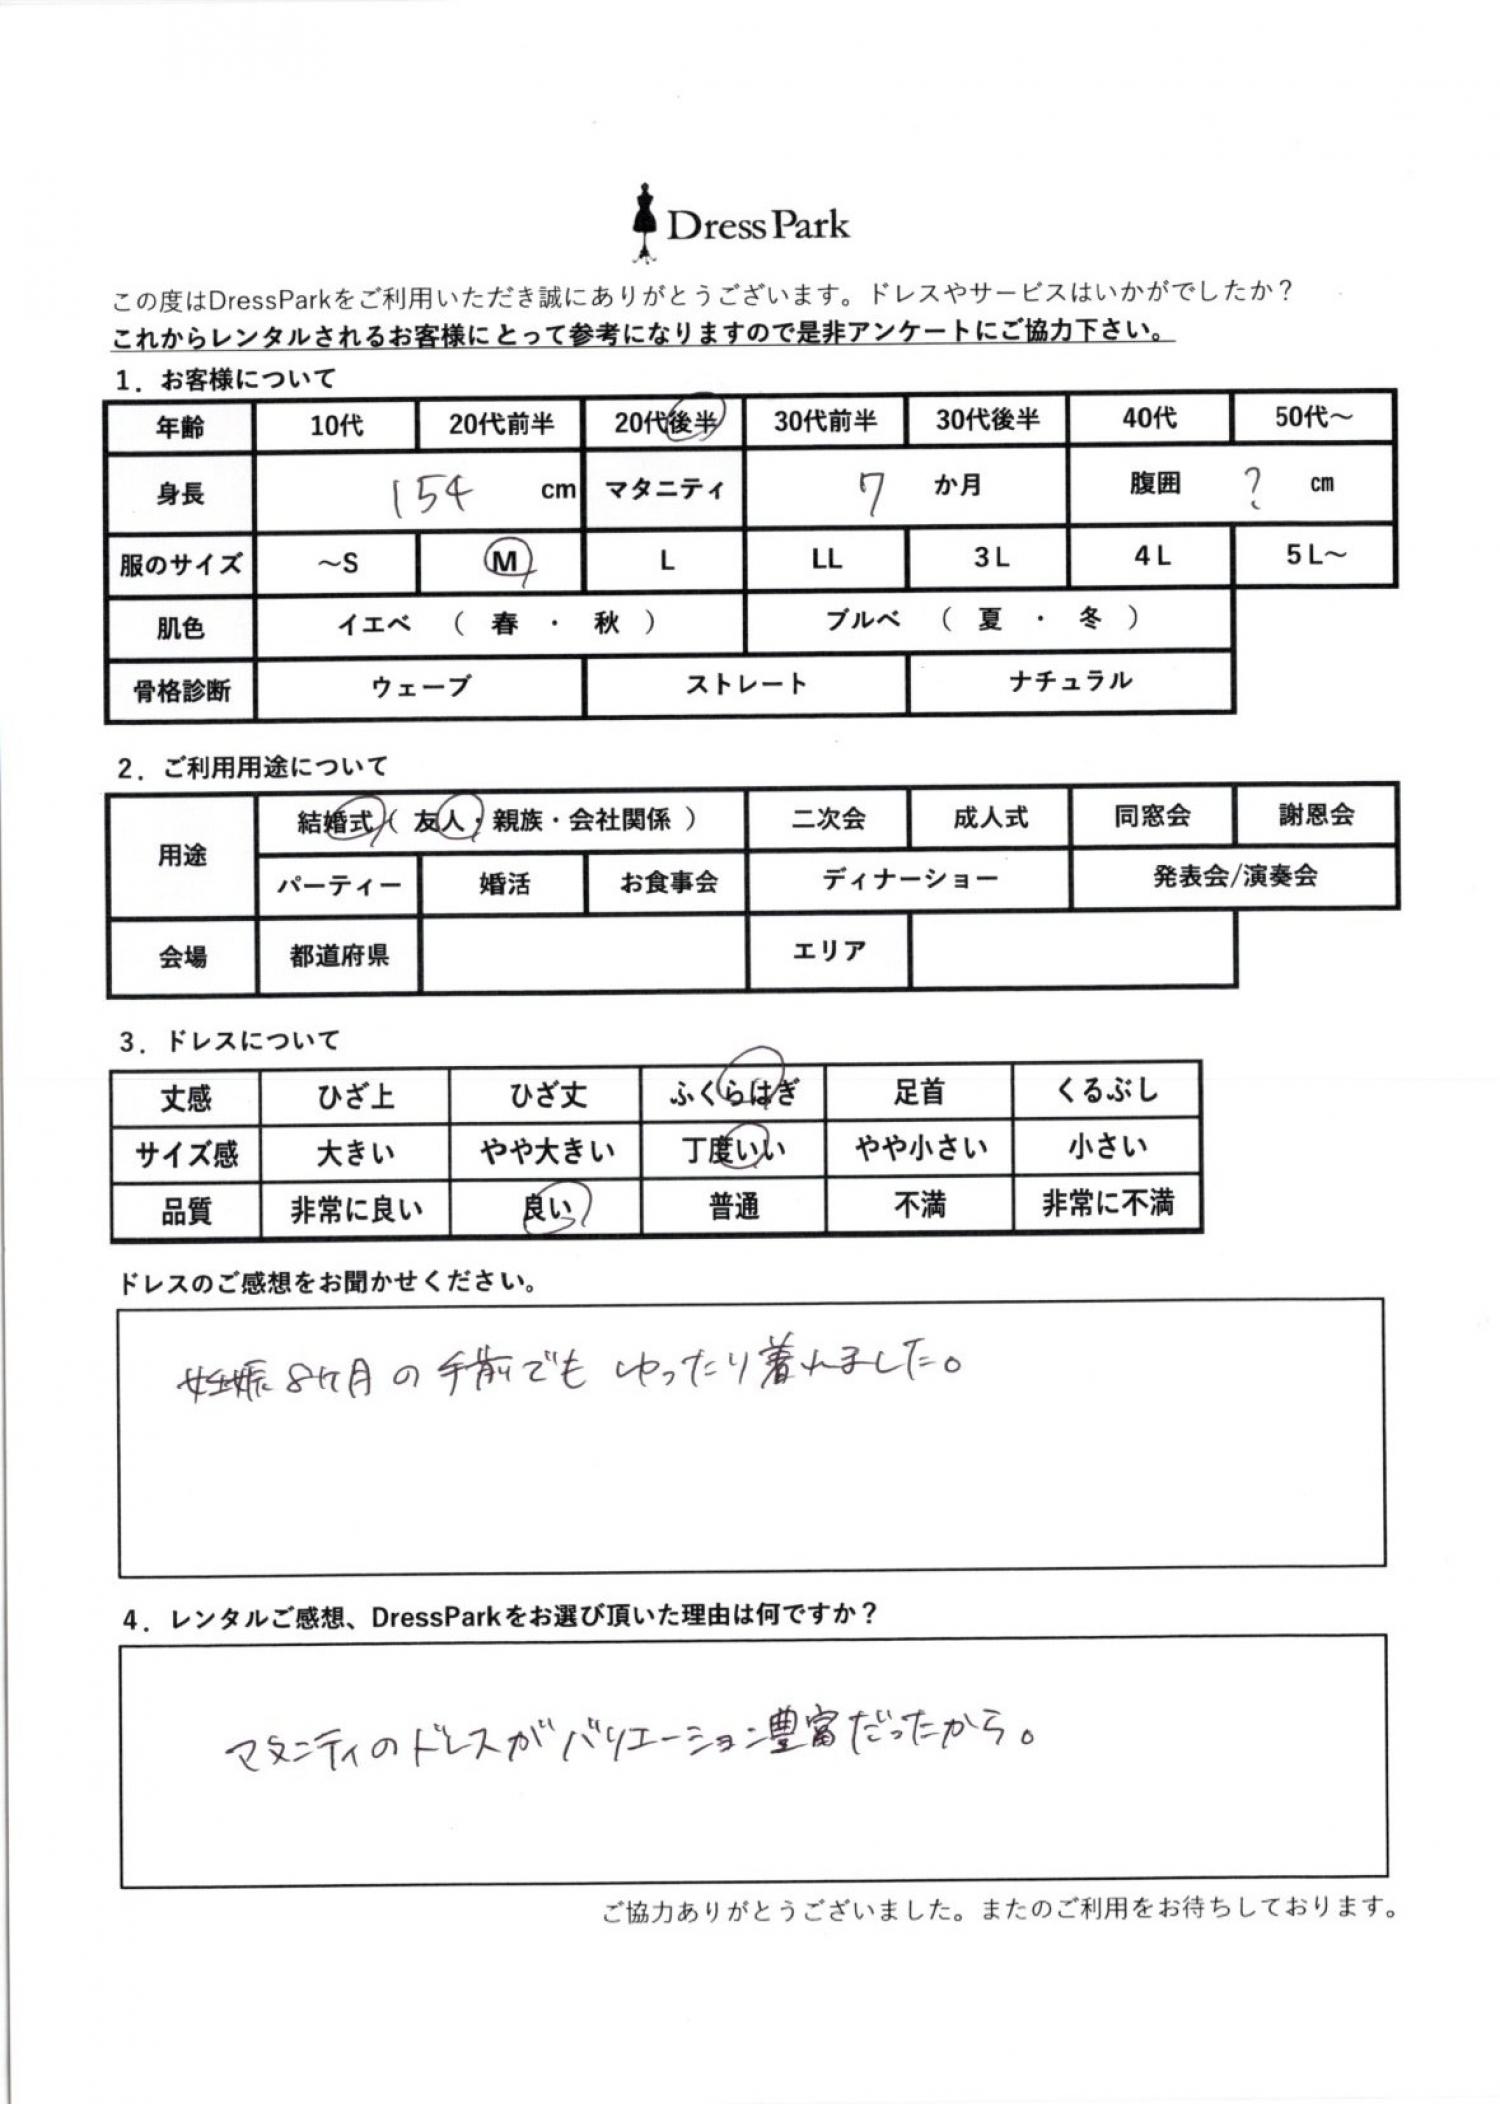 Dress Park
この度はDressParkをご利用いただき誠にありがとうございます。ドレスやサービスはいかがでしたか？
これからレンタルされるお客様にとって参考になりますので是非アンケートにご協力下さい。
1．お客様について
年齢 10代 20代前半 20代後半 30代前半 30代後半 40代 50代～
身長 154 cm マタニティ 7 か月 腹囲 ? cm
服のサイズ ～S M L LL 3L 4L 5L～
肌色 イエベ （ 春 ・ 秋 ） ブルベ （ 夏 ・ 冬 ）
骨格診断 ウェーブ ストレート ナチュラル
2．ご利用用途について
用途 結婚式（ 友人・親族・会社関係 ） 二次会 成人式 同窓会 謝恩会
パーティー 婚活 お食事会 ディナーショー 発表会/演奏会
会場 都道府県 エリア
3．ドレスについて
丈感 ひざ上 ひざ丈 ふくらはぎ 足首 くるぶし
サイズ感 大きい やや大きい 丁度いい やや小さい 小さい
品質 非常に良い 良い 普通 不満 非常に不満
ドレスのご感想をお聞かせください。
妊娠8ヶ月の手前でもゆったり着れました。
4．レンタルご感想、DressParkをお選び頂いた理由は何ですか？
マタニティのドレスがバリエーション豊富だったから。
ご協力ありがとうございました。またのご利用をお待ちしております。